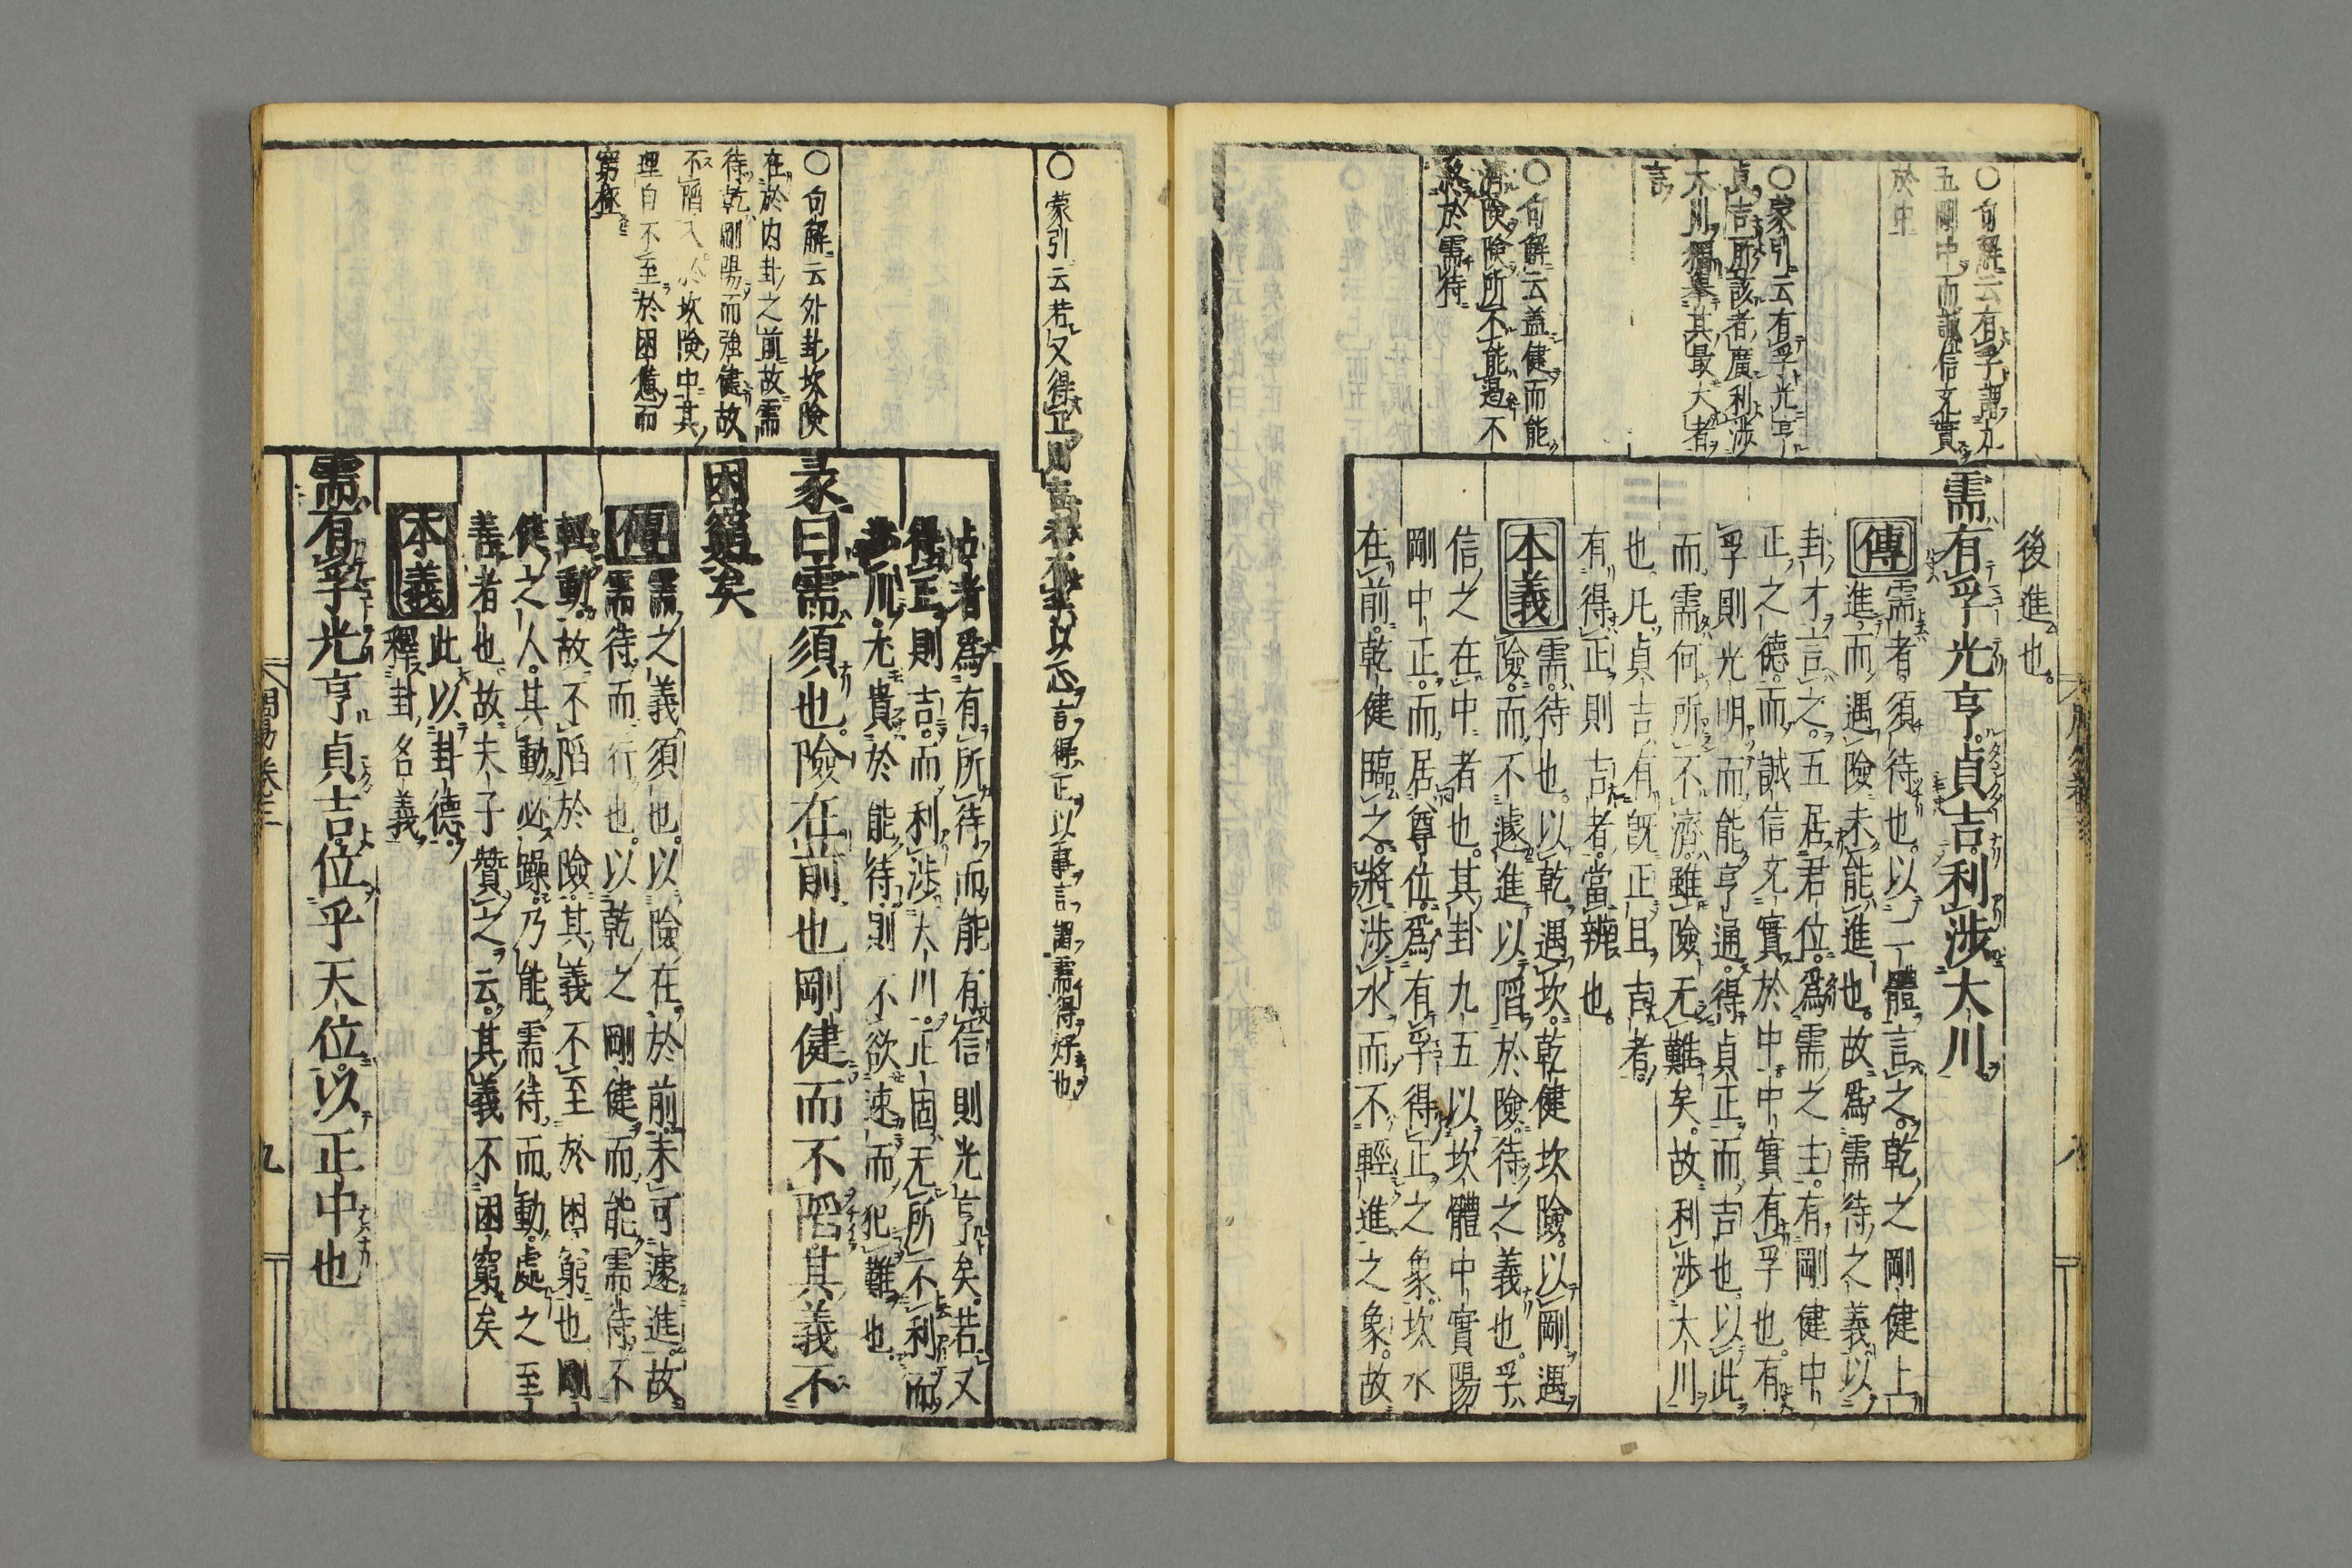 〇句解云有孚謂九
五剛中而誠信充實
於中
〇蒙引云有孚光亨
貞吉所該者廣利涉
大川獨舉其最大者
言
〇句解云蓋健而能
濟險險所不能遏不
終於需待
後進也
需有孚光亨貞吉利涉大川
傳需者須待也以二體言之乾之剛健上
進而遇險未能進也故爲需待之義以
卦才言之五居君位爲需之主有剛健中
正之德而誠信充實於中中實有孚也有
孚則光明而能亨通得貞正而吉也以此
而需何所不濟雖險无難矣故利涉大川
也凡貞吉有旣正且吉者
有得正則吉者當辨也
本義需待也以乾遇坎乾健坎險以剛遇
險而不遽進以陷於險待之義也孚
信之在中者也其卦九五以坎體中實陽
剛中正而居尊位爲有孚得正之象坎水
在前乾健臨之將涉水而不輕進之象故
〇蒙引云若又得正則吉以心言得正以事言謂需得好也
占者爲有所待而能有信則光亨矣若又
得正則吉而利涉大川正固无所不利而
涉川尤貴於能待則不欲速而犯難也
〇句解云外卦坎險
在於內卦之前故需
待乾剛陽而強健故
不陷入於坎險中其
理自不至於困憊而
窮極
彖曰需須也險在前也剛健而不陷其義不
困窮矣
傳需之義須也以險在於前未可遽進故
需待而行也以乾之剛健而能需待不
輕動故不陷於險其義不至於困窮也剛
健之人其動必躁乃能需待而動處之至
善者也故夫子贊之云其義不困窮矣
本義此以卦德
釋卦名義
需有孚光亨貞吉位乎天位以正中也
周易卷三
九